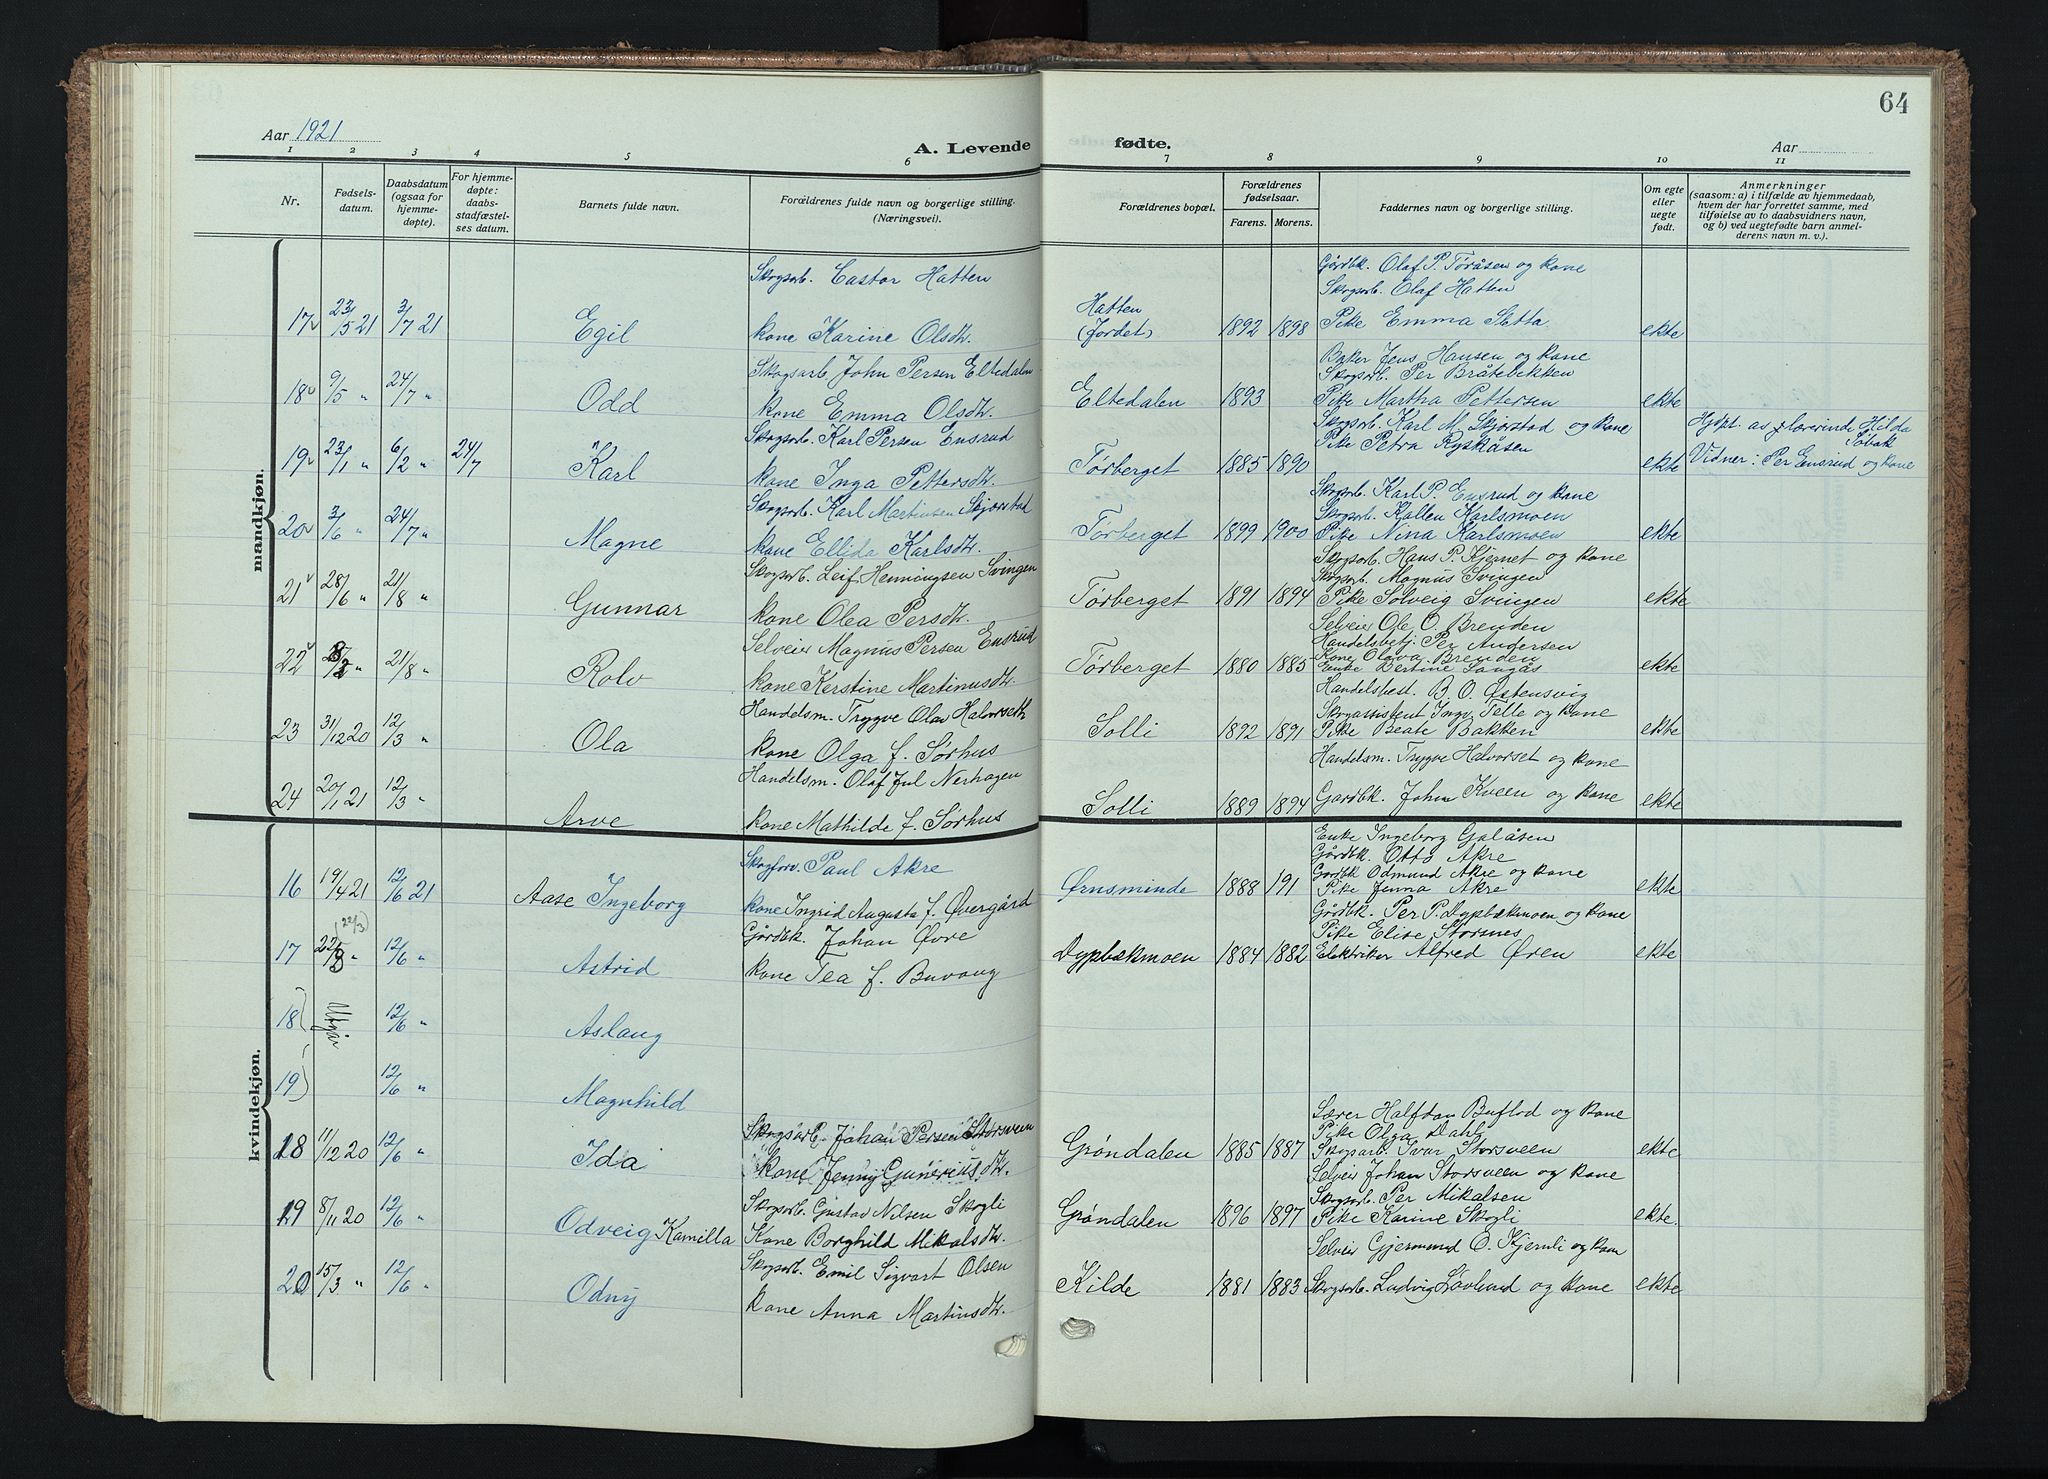 64
Aar 1921
A. Levende
fødte.
Aar
1 2 3 4 5 6 7 8 9 10 11
Nr.
Fødsels-
datum.
Daabsdatum
(ogsaa for
hjemme-
døpte).
For hjemme-
døpte:
daabs-
stadfæstel-
ses datum.
Barnets fulde navn.
Forældrenes fulde navn og borgerlige stilling.
(Næringsvei).
Forældrenes bopæl.
Forældrenes
fødselsaar.
Farens. Morens.
Faddernes navn og borgerlige stilling.
Om egte
eller
uegte
født.
Anmerkninger
(saasom: a) i tilfælde av hjemmedaab,
hvem der har forrettet samme, med
tilføielse av to daabsvidners navn,
og b) ved uegtefødte barn anmel-
derens navn m. v.).
mandkjøn.
Skogsarb. Castor Hatten
Gårdbk. Olaf P. Töråsen og kone
Skogsarb. Olaf Hatten
17 23/5 21 3/7 21 Egil kone Karine Olsdtr. Hatten (Jordet) 1892 1898 Pike Emma Sætta ekte
Skogsarb. John Persen Eltedalen
Baker Jens Hansen og kone
Skogsarb. Per Bråtebekken
18 9/5 " 24/7 " Odd kone Emma Olsdtr. Eltedalen 1893 Pike Martha Pettersen ekte
Skogsarb. Karl Persen Ensrud
Skogsarb. Karl M. Skjørstad og kone
Pike Petra Ryskåsen
Hjdpt. av lærerinde Hilda
19 23/1 " 6/2 " 24/7 Karl kone Inga Pettersdtr. Tørberget 1885 1890 ekte Vidner: Per Ensrud og kone
Skogsarb. Karl Martinsen Skjørstad
Skogsarb. Karl P. Ensrud og kone
Skogsarb. Kallen Karlsmoen
20 3/6 " 24/7 " Magne kone Ellida Karlsdtr. Tørberget 1899 1900 Pike Nina Karlsmoen ekte
Skogsarb. Leif Henningsen Svingen
Skogsarb. Hans P. Kjernet og kone
Skogsarb. Magnus Svingen
21 28/6 " 21/8 " Gunnar kone Olea Persdtr. Tørberget 1891 1894 Pike Solveig Svingen ekte
Selveier Magnus Persen Ensrud
Selveier Ole O. Brenden
Handelsbetj. Per Andersen
Kone Olava Brenden
22 21/8 " Rolv kone Kerstine Martinusdtr. Tørberget 1880 1885 Enke Bertine Langås ekte
Handelsm. Trygve Olav Halvorseth
Handelsbest. B. O. Østensvig
Skogassistent Ingv. Telle og kone
23 31/12 20 12/3 " Ola kone Olga f. Sørhus Solli 1892 1891 Pike Beate Bakken ekte
Handelsm. Olaf Jul Nerhagen
Handelsm. Trygve Halvorset og kone
24 20/1 21 12/3 " Arve kone Mathilde f. Sørhus Solli 1889 1894 Gardbk. Johan Kveen og kone ekte
kvindekjøn.
Skogforv. Paul Akre
Enke Ingeborg Galåsen
Gårdbk. Otto Akre
Gardbk Odmund Akre og kone
16 19/4 21 12/6 21 Aase Ingeborg kone Ingrid Augusta f. Øvergård Ørnsminde 1888 191 Pike Jenna Akre ekte
(22/3)
Gårdbk. Johan Øvre
Gårdbk. Per P. Dypbækmoen og kone
Pike Elise Storsnes
17 22/3 " 12/6 " Astrid kone Tea f. Buvang Dypbækmoen 1884 1882 Elektriker Alfred Øren ekte
18 Utgår 12/6 " Aslaug
19 12/6 " Magnhild
Skogsarb. Johan Persen Storsveen
Lærer Halfdan Buflod og kone
Pike Olga Dahl
18 11/12 20 12/6 " Ida kone Jenny Gunerius dtr. Grøndalen 1885 1887 Skogsarb. Ivar Storsveen ekte
Skogsarb. Gustav Nilsen Skogli
Selveier Johan Storsveen og kone
Skogsarb. Per Mikalsen
19 8/11 20 12/6 " Odveig Kamilla Kone Borghild Mikalsdtr. Grøndalen 1896 1897 Pike Karine Skogli ekte.
Skogsarb. Emil Sigvart Olsen
Selveier Gjermund O. Kjernli og kone
20 15/3 " 12/6 " Odny kone Anna Martinsdtr. Kilde 1881 1883 Skogsarb. Ludvig Løvlund og kone ekte